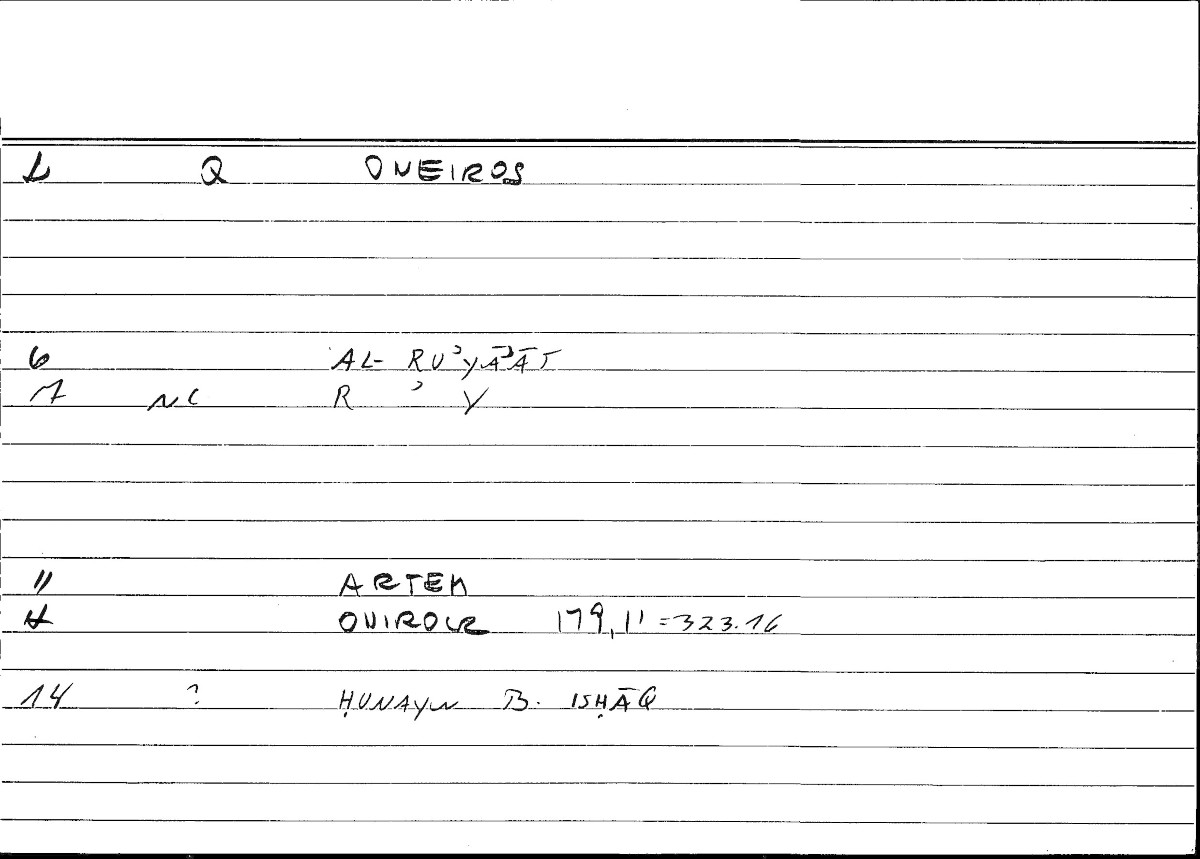 1 Q ONEIROS
6 AL-RUʾYĀʾĀT
7 NC R ʾ Y
11 ARTEM
12 ONIROCR 179,11=323.16
14 ? ḤUNAYN B. ISḤĀQ